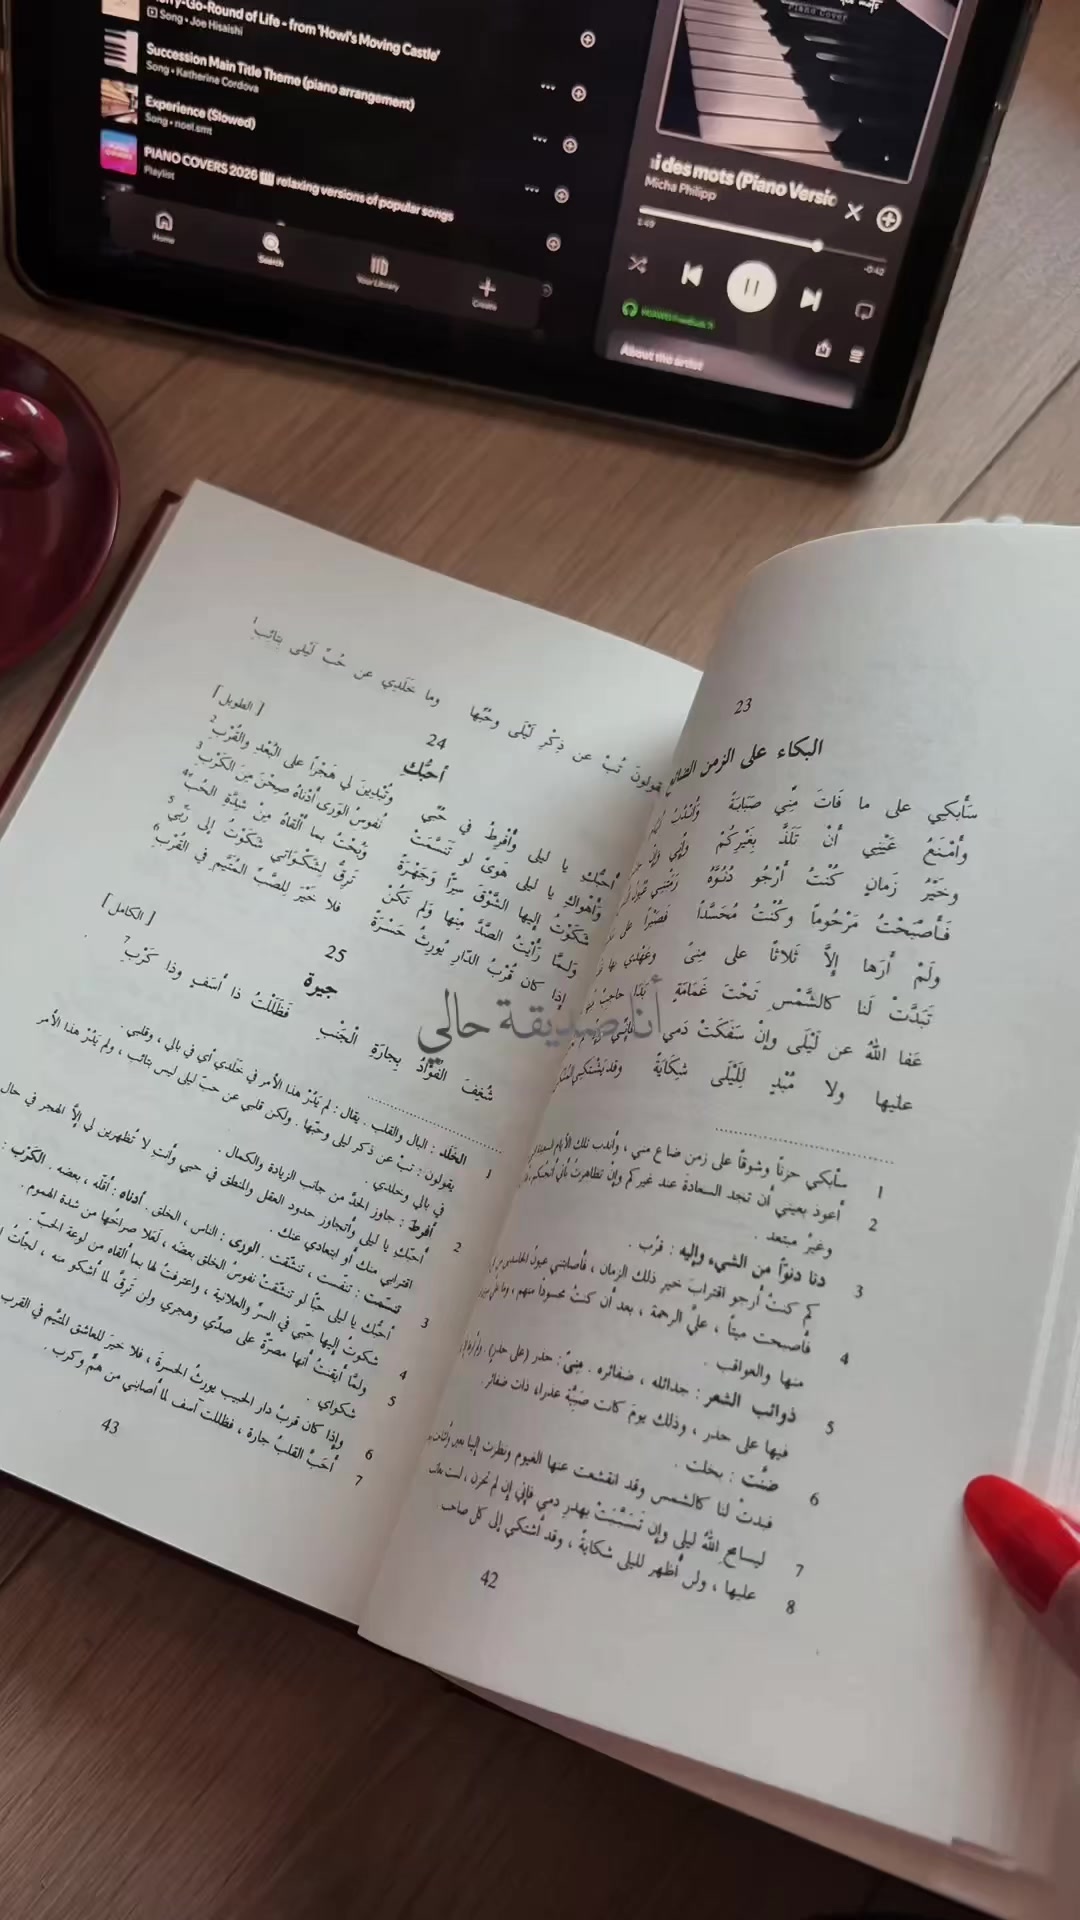 ry-Go-Round of Life - from 'Howl's Moving Castle'
Song • Joe Hisaishi
Succession Main Title Theme (piano arrangement)
Song • Katherine Cordova
Experience (Slowed)
Song • noel.smt
PIANO COVERS 2026 relaxing versions of popular songs
Playlist
Home
Search
Your Library
Create
Piano Cover
i des mots (Piano Versio
Micha Philipp
1:49
-0:42
About the artist
23
البكاء على الزمن
سَأَبكِي على ما فَاتَ مِنِّي صَبَابَةً
وأَمْنَعُ عَيْنِي أَنْ تَلَذَّ بِغَيْرِكُمْ
وخَيْرُ زَمانٍ كُنْتُ أَرْجُو دُنُوَّهُ
فَأَصْبَحْتُ مَرْحُوماً وكُنْتُ مُحَسَّداً فَصَبْراً على
ولَمْ أَرَها إِلاَّ ثَلاثاً على مِنىً وعَهْدي بها
تَبَدَّتْ لَنا كالشَّمْسِ تَحْتَ غَمَامَةٍ بَدَا حاجِبٌ
عَفا اللهُ عن لَيْلَى وإنْ سَفَكَتْ دَمي
عليها ولا مُبْدٍ لِلَيْلَى شِكَايَةً
1 سأبكي حزناً وشوقاً على زمن ضاع مني ، وأندب تلك الأيام السعيدة
2 أعوذ بعيني أن تجد السعادة عند غيركم وإنْ تظاهرتُ بأني أتجنبكم ،
وغيرُ مبتعد .
3 دنا دنوّاً من الشيء وإليه : قرُب .
كم كنتُ أرجو اقترابَ خيرِ ذلك الزمان ، فأصابتني عيونُ
4 فأصبحت ميتاً ، عليَّ الرحمة ، بعد أن كنتُ محسوداً منهم ، وما
منها والعواقب .
5 ذوائب الشعر : جدائله ، ضفائره . مِنىً : حذر (على حذرٍ) .
فيها على حذر ، وذلك يومَ كانت صَبِيَّة عذراء ذات ضفائر .
6 ضنّت : بخلت .
فبدتْ لنا كالشمس وقد انقشعت عنها الغيوم ونظرت إلينا بعين
7 ليسامحِ اللهُ ليلى وإن تَسَبَّبَتْ بهدرِ دمي فإني إن لم تحزن ، لست
8 عليها ، ولن أظهر لليلى شكايةً ، وقد أشتكي إلى كل صاحب
42
يقولونَ تُبْ عن ذِكْرِ لَيْلَى وحُبِّها وما خَلَدِي عن حُبِّ لَيْلَى بِتائِبِ 1
24
أحبُّكِ
[ الطويل ]
أُحبُّكِ يا ليلى وأُفْرِطُ في حُبِّي وتُبْدِينَ لي هَجْراً على البُعْدِ والقُرْبِ 2
وأَهْواكِ يا ليلى هَوىً لو تَنَسَّمَتْ نُفوسُ الوَرى أَدْناهُ صِحْنَ مِنَ الكَرْبِ 3
شَكَوْتُ إليها الشَّوْقَ سِرّاً وَجَهْرَةً وَبُحْتُ بما أَلْقاهُ مِنْ شِدَّةِ الحُبِّ 4
ولمّا رَأَيْتُ الصَّدَّ مِنْها ولَم تَكُنْ تَرِقُّ لِشَكْوَاتي شَكَوْتُ إلى ربِّي 5
إذا كان قُرْبُ الدّارِ يُورِثُ حَسْرَةً فلا خَيْرَ لِلصَّبِّ المُتَيَّمِ في القُرْبِ 6
25
جيرة
[ الكامل ]
شُغِفَ الفُؤَادُ بِجارَةِ الجَنْبِ فَظَلَلْتُ ذا أَسَفٍ وذا كَرْبِ 7
1 الخَلَد : البال والقلب . يقال : لم يَدُرْ هذا الأمر في خَلَدي أي في بالي ، وقلبي .
يقولون : تبْ عن ذكر ليلى وحبّها . ولكن قلبي عن حبّ ليلى ليس بتائب ، ولم يَدُرْ هذا الأمر
في بالي وخلدي .
2 أفرط : جاوز الحدَّ من جانب الزيادة والكمال .
أحبّكِ يا ليلى وأتجاوز حدود العقل والمنطق في حبي وأنتِ لا تُظهرين لي إلاَّ الهجر في حال
اقترابي منك أو ابتعادي عنك .
3 تنسّمت : تنفّست ، تنشّقت . الورى : الناس ، الخلق . أدناه : أقله ، بعضه . الكَرْب :
أحبُّك يا ليلى حبّاً لو تنشّقتْ نفوسُ الخلق بعضَه ، لَعَلا صراخُها من شدة الهموم .
4 شكوتُ إليها حبّي في السرِّ والعلانية ، واعترفتُ لها بما ألقاه من لوعة الحبّ .
5 ولمَّا أيقنتُ أنها مصرّةٌ على صدِّي وهجري ولن تَرِقَّ لما أشكو منه ، لجأتُ
شكواي .
6 وإذا كان قربُ دار الحبيب يورثُ الحسرةَ ، فلا خيرَ للعاشق المتيَّم في القرب
7 أحَبَّ القلبُ جارة ، فظللت آسف لما أصابني من همٍّ وكرب .
43
أنا صديقة حالي